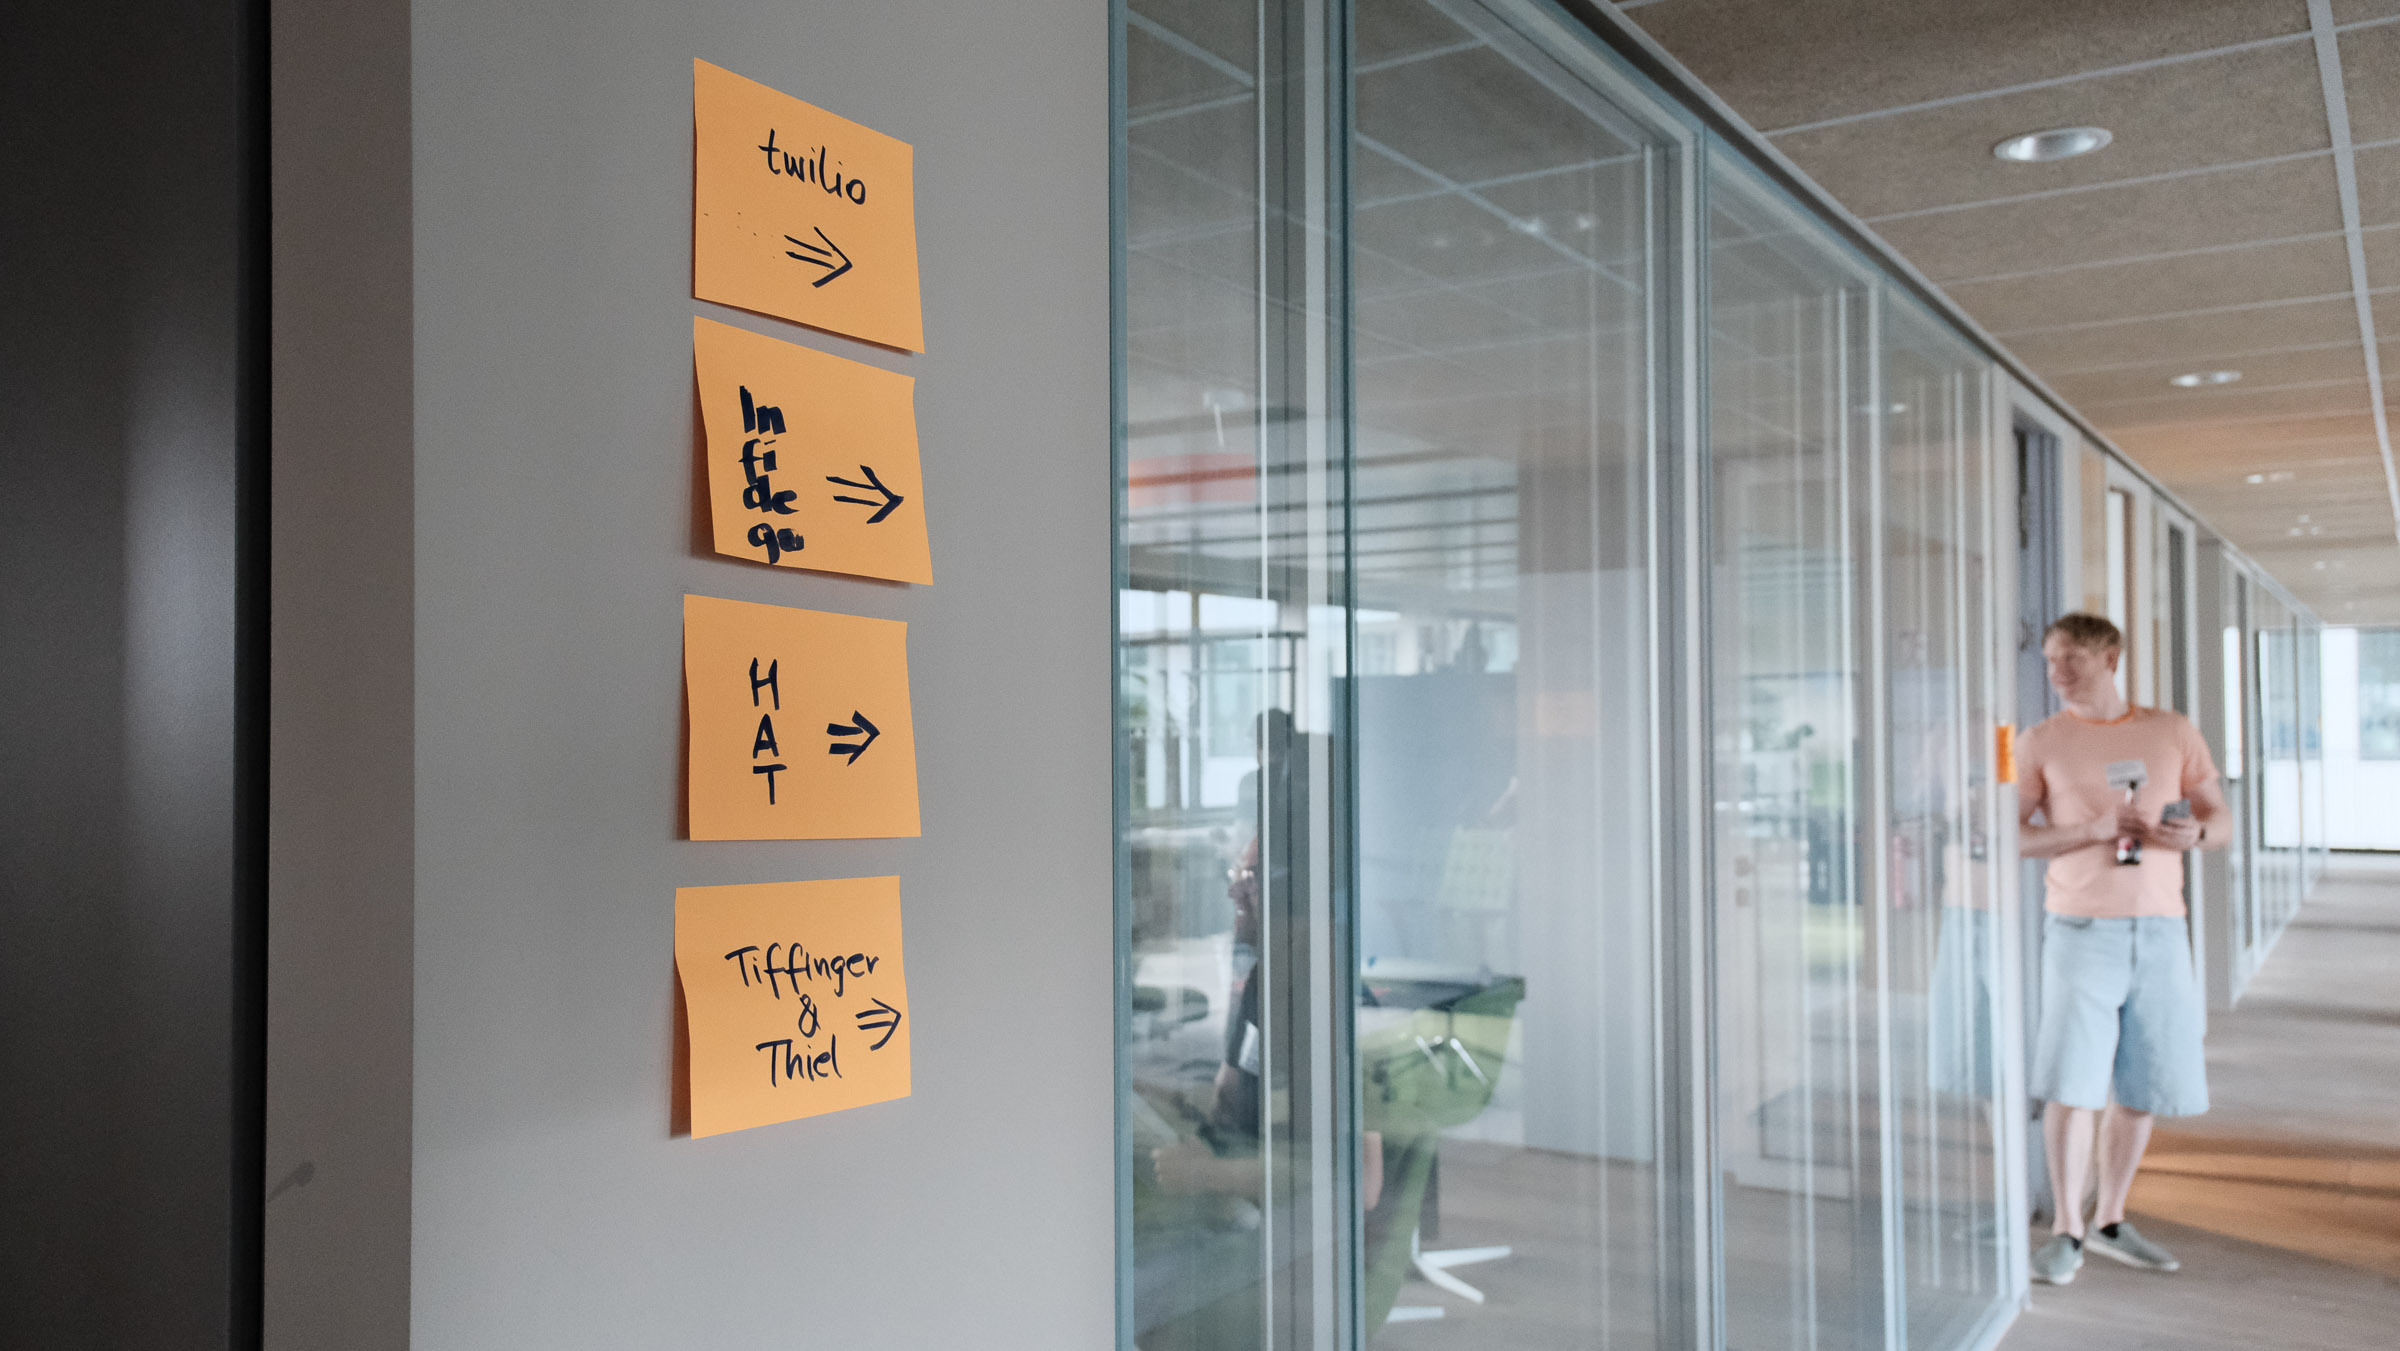 twilio
⇒
In
fi
de
go
⇒
H
A
T
⇒
Tiffinger
&
⇒
Thiel